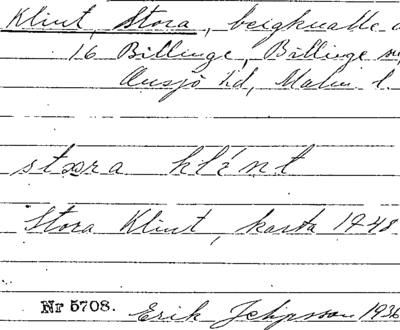 Klint, Stora, bergknalle
16 Billinge, Billinge
Onsjö hd, Malm. l.
stora klint
Stora Klint, karta 1748
Nr 5708. Erik Jeppsson 1936